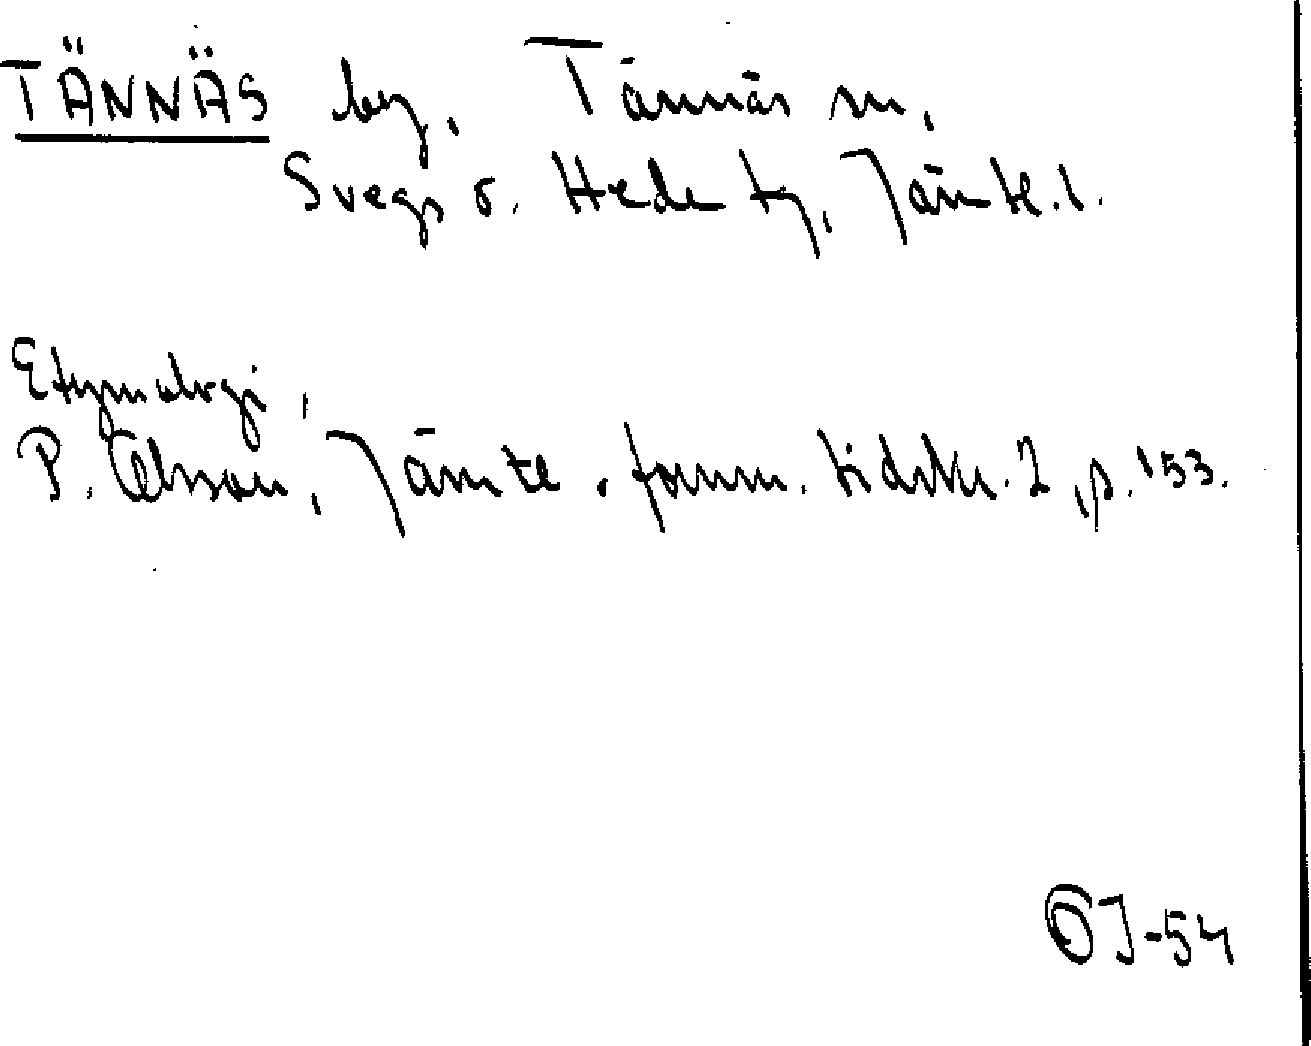 TÄNNÄS by, Tännäs sn,
Svegs o. Hede tg, Jämtl. l.
Etymologi,
P. Olsson, Jämtl. fornm. tidskr. 2, p. 153.
OJ-54